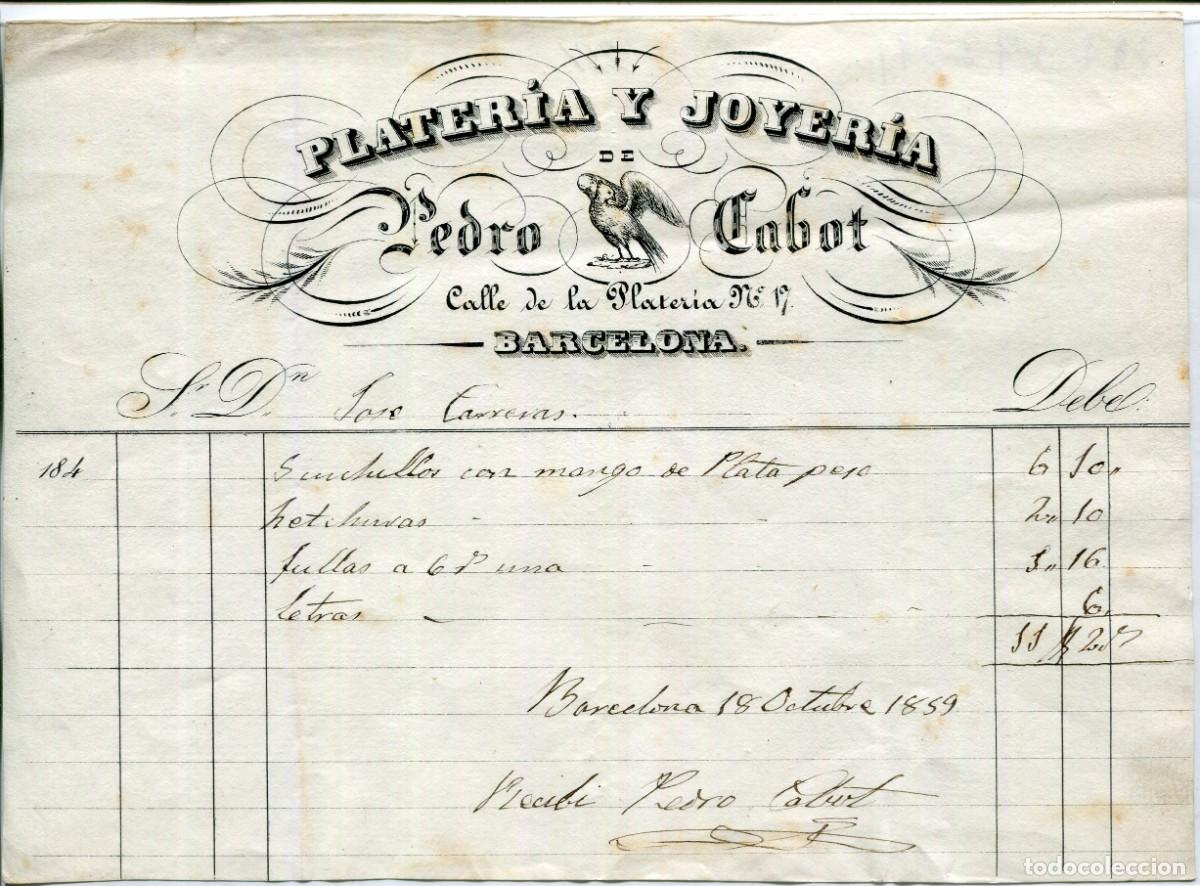 PLATERÍA Y JOYERÍA
DE
Pedro Cabot
Calle de la Platería Nº 17.
BARCELONA.
Sr. Dn. Jose Carreras. Debe
184 5 cuchillos con mango de Plata peso 6 10,,
hetchuras - 2,, 10
fullas a 6 rs una 3,, 16
letras - 6,,
11 # 2 rs
Barcelona 18 Octubre 1859
Recibi Pedro Cabot
todocoleccion